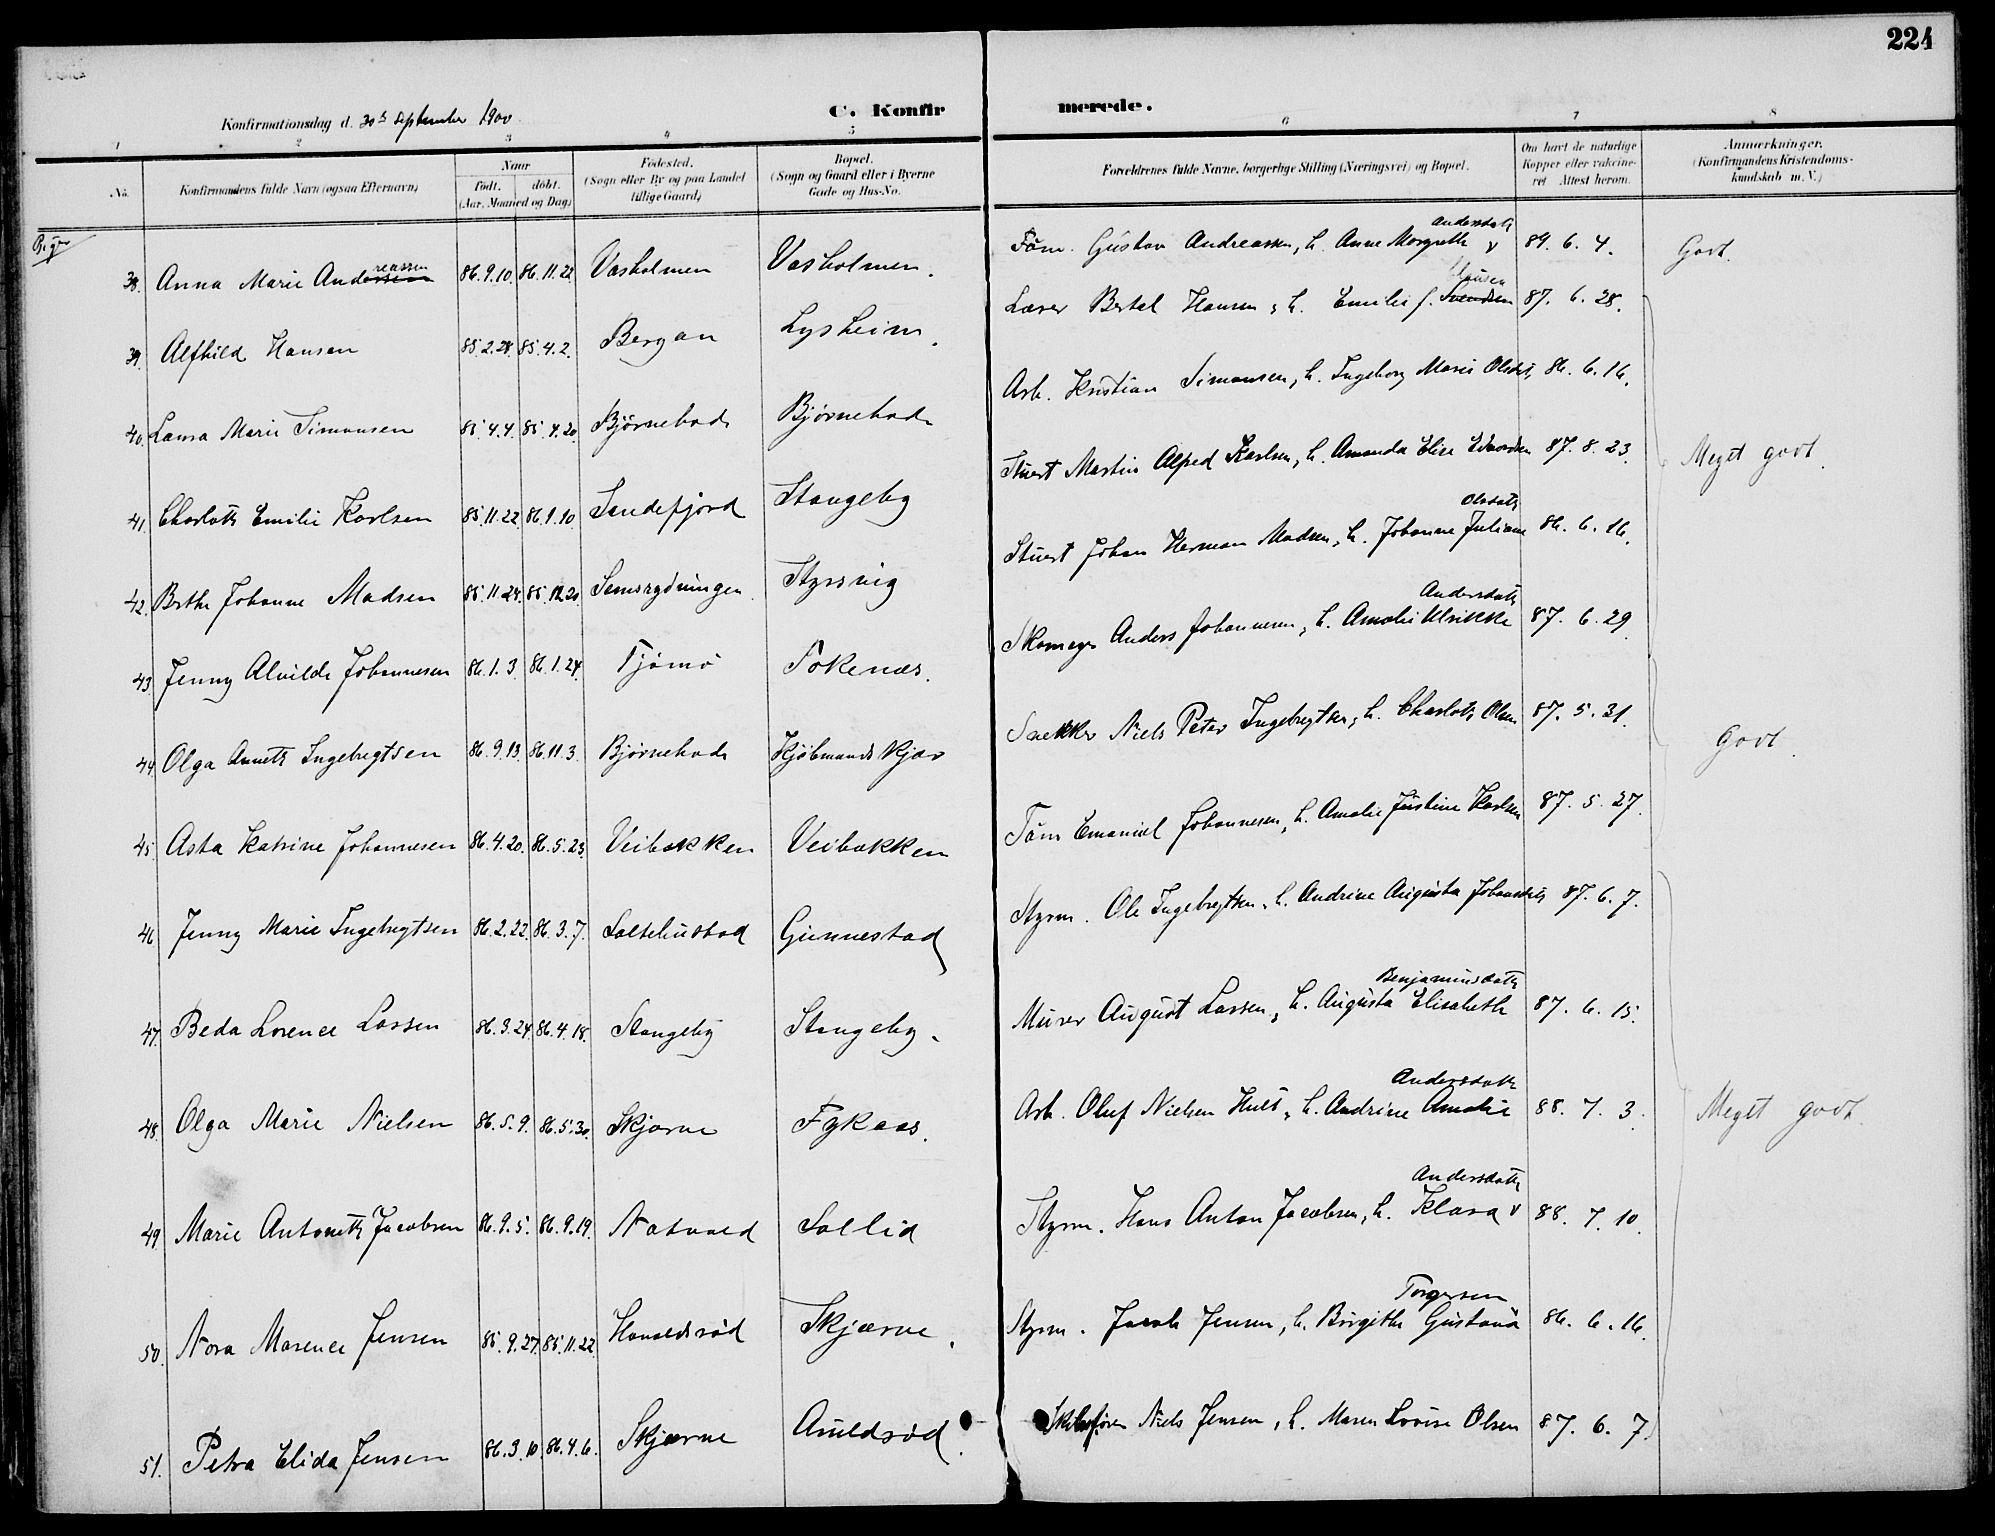 224
Konfirmationsdag d. 30te September 1900
C. Konfirmerede.
1 2 3 4 5 6 7 8
No. Konfirmandens fulde Navn (ogsaa Efternavn) Naar født. døbt. (Aar, Maaned og Dag) Fødested. (Sogn eller By og paa Landet tillige Gaard) Bopæl. (Sogn og Gaard eller i Byerne Gade og Hus-No. Forældrenes fulde Navne, borgerlige Stilling (Næringsvei) og Bopæl. Om havt de naturlige Kopper eller vakcineret Attest herom. Anmærkninger. (Konfirmandens Kristendomskundskab m. V.)
Piger
38. Anna Marie Andersen reassen 86.9.10. 86.11.22 Vasholmen Vasholmen. Tøm. Gustav Andreassen, h. Anne Margrethe Andersdatt 89.6.4. Godt.
39. Alfhild Hansen 85.2.28. 85.4.2. Bergan Lysheim. Lærer Bertel Hansen, h. Emilie f. Svendsen Hansen 87.6.28.
40. Laura Marie Simonsen 85.4.4. 85.4.20. Bjørnebode Bjørnebode Arb. Kristian Simonsen, h. Ingeborg Marie Olsdt. 86.6.16.
41. Charlotte Emilie Karlsen 85.11.22. 86.1.10. Sandefjord Stangeby Stuert Martin Alfred Karlsen, h. Amanda Elise Edvardsen 87.8.23. Meget godt.
42. Berthe Johanne Madsen 85.11.24. 85.12.20. Semsrydningen Styrsvig Stuert Johan Herman Madsen, h. Johanne Juliane Olsdatt 86.6.16.
43. Jenny Alvilde Johannesen 86.1.3. 86.1.24. Tjømø Tokenæs. Skomager Anders Johannesen, h. Amalie Ulrikke Andersdatt 87.6.29.
44. Olga Annette Ingebregtsen 86.9.13. 86.11.3. Bjørnebode Kjøbmandskjær Snekker Niels Peter Ingebregtsen, h. Charlotte Olsen 87.5.31. Godt.
45. Asta Katrine Johannesen 86.4.20. 86.5.23. Veibakken Veibakken Tøm Emanuel Johannesen, h. Amalie Justine Karlsen 87.5.27.
46. Jenny Marie Ingebregtsen 86.2.22. 86.3.7. Gunnestad Styrm. Ole Ingebregtsen, h. Andrine Augusta 87.6.7.
47. Beda Lorence Lassen 86.3.24. 86.4.18. Stangeby Stangeby. Murer August Lassen, h. Augusta Elisabeth Benjaminsdatt 87.6.15.
48. Olga Marie Nielsen 86.5.9. 86.5.30. Skjærve Fykaas. Arb. Oluf Nielsen, h. Andrine Amalie Andersdatt 88.7.3. Meget godt.
49. Marie Antonette Jacobsen 86.9.5. 86.9.19. Natvald Sollid Styrm. Hans Anton Jacobsen, h. Klara Andersdatt 88.7.10.
50. Nora Marence Jensen 85.9.27. 85.11.22. Skjærve. Styrm. Jacob Jensen, h. Birgithe Gustava Torgersen 86.6.16.
51. Petra Elida Jensen 86.3.10. 86.4.6. Skjærve Auldsrød. Skibsfører Niels Jensen, h. Maren Lovise Olsen 87.6.7.